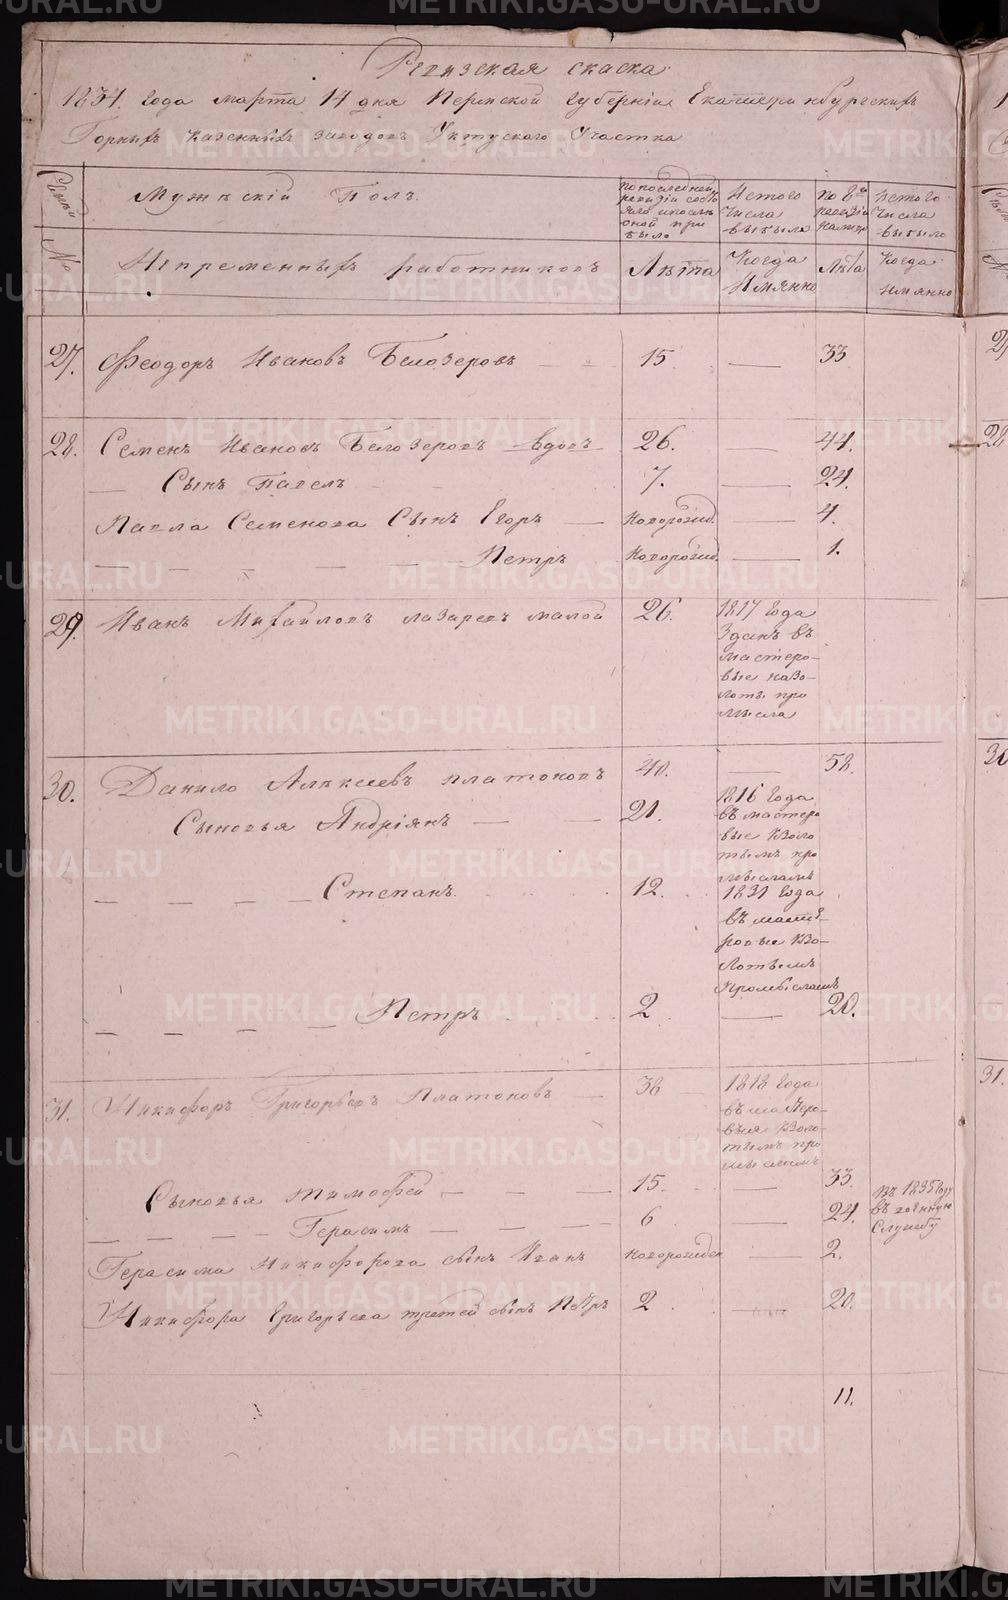 Ревизская скаска
1834. года марта 14 дня Пермской губернiи Екатеринбургскихъ
Горныхъ казенныхъ заводовъ Уктуского Участка
Семей
№
Мужескiй Полъ.
Непременныхъ работниковъ
по последней
ревизiи состо
яло и после
оной при
было
Лета
Истого
Числа
выбыло
Когда
Имянно
по 8й
ревизiи
налицо
Лета
Истого
Числа
выбыло
Когда
имянно
27. Феодоръ Ивановъ Белозеровъ 15. 33
28. Семенъ Ивановъ Белозеровъ вдовъ 26. 44.
Сынъ Павелъ 7. 24.
Павла Семенова Сынъ Егоръ Новорожд. 4.
Петръ Новорожд. 1.
29. Иванъ Михайловъ лазаревъ малой 26. 1817 года
Зданъ въ
мастеро-
вые назо-
лоты про
мысла
30. Данило Алексеевъ платоновъ 40. 58.
Сыновья Андрiянъ 21. 1816 года
въ мастеро
вые кзоло
тымъ про
мысламъ
Степанъ 12. 1831 года
въ масте-
ровые кзо-
лотымъ
Промысламъ
Петръ 2 20.
31. Никифоръ Григорьевъ Платоновъ 38 1818 года
въ мастеро-
выя кзоло-
тымъ про
мысламъ
Сыновья тимофей 15. 33.
Герасимъ 6 24. въ 1835 году
въ военную
Службу
Герасима Никифорова сынъ Иванъ новорожден 2.
Никифора Григорьева третей сынъ Петръ 2 20.
11.
27
28
30
31.
METRIKI.GASO-URAL.RU